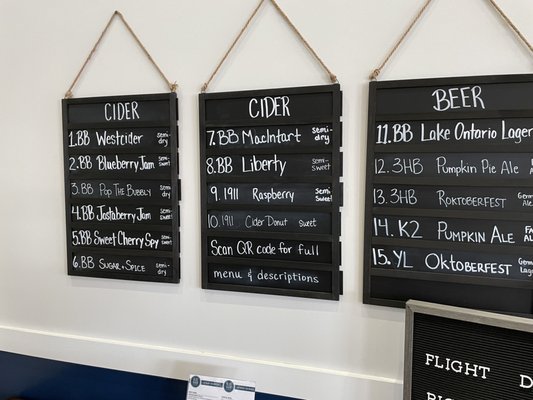 CIDER
1.BB Westcider Semi-dry
2.BB Blueberry Jam Semi-sweet
3.BB Pop The Bubbly Semi-dry
4.BB Jostaberry Jam Semi-sweet
5.BB Sweet Cherry Spy Semi-sweet
6.BB Sugar + Spice Semi-dry
CIDER
7.BB MacIntart Semi-dry
8.BB Liberty Semi-sweet
9.1911 Raspberry Semi-sweet
10.1911 Cider Donut Sweet
Scan QR code for full
menu & descriptions
BEER
11.BB Lake Ontario Lager
12.3HB Pumpkin Pie Ale
13.3HB Roktoberfest
14.K2 Pumpkin Ale
15.YL Oktoberfest
FLIGHT